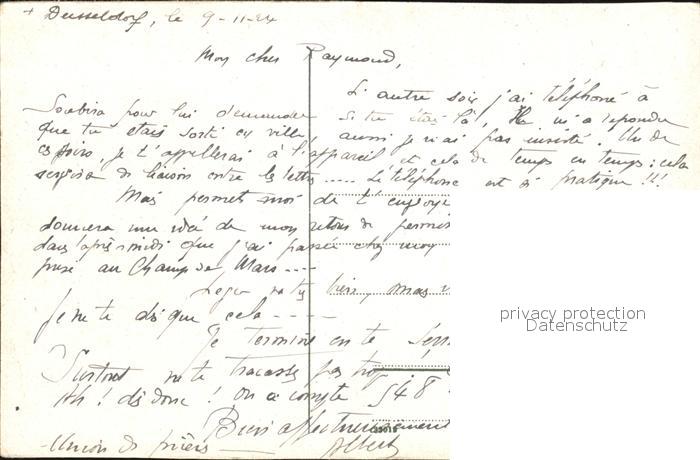 + Dusseldorf, le 9-11-24
Mon cher Raymond,
L'autre soir j'ai téléphoné à
pour lui demander si tu étais là, Il m'a répondu
que tu étais sorti en ville, aussi je n'ai pas insisté. Un de
ces jours, je t'appellerai à l'appareil, et cela de temps en temps; cela
servira de liaison entre les lettres ..... Le téléphone est si pratique !!!
Mais permets moi de t'
donnera une idée de mon retour de
dans l'après-midi que j'ai passée chez moy
au Champ de Mars ----
bien, mais
Je ne te dis que cela - - - - -
Je termine en te
Surtout ne te tracasse pas trop
Ah ! dis donc ! On a compté 548
Bien affectueusement
Albert
- Union de prières
privacy protection
Datenschutz